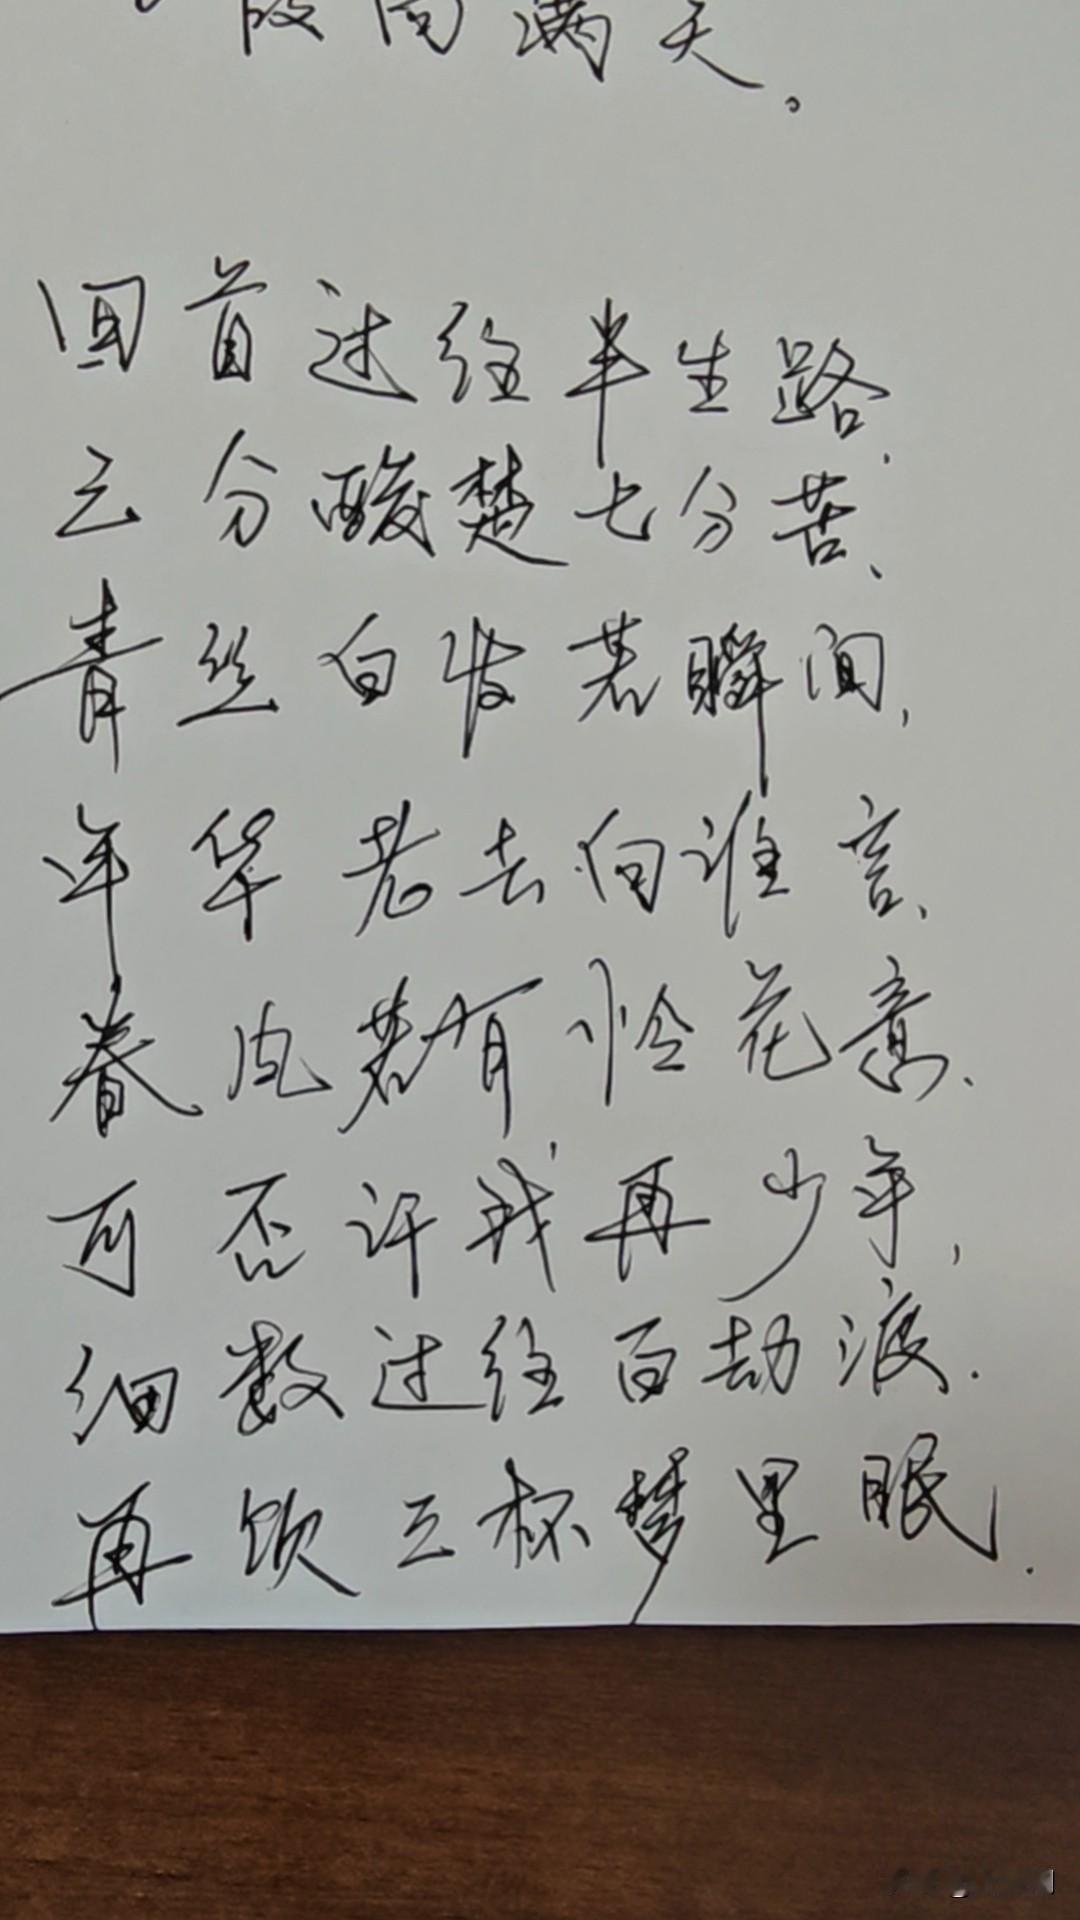 满天。
回首过经半生路、
三分酸楚七分苦、
青丝白发若瞬间,
年华老去向谁言、
春风若有怜花意、
可否许我再少年,
细数过经百劫渡.
再饮三杯梦里眠.